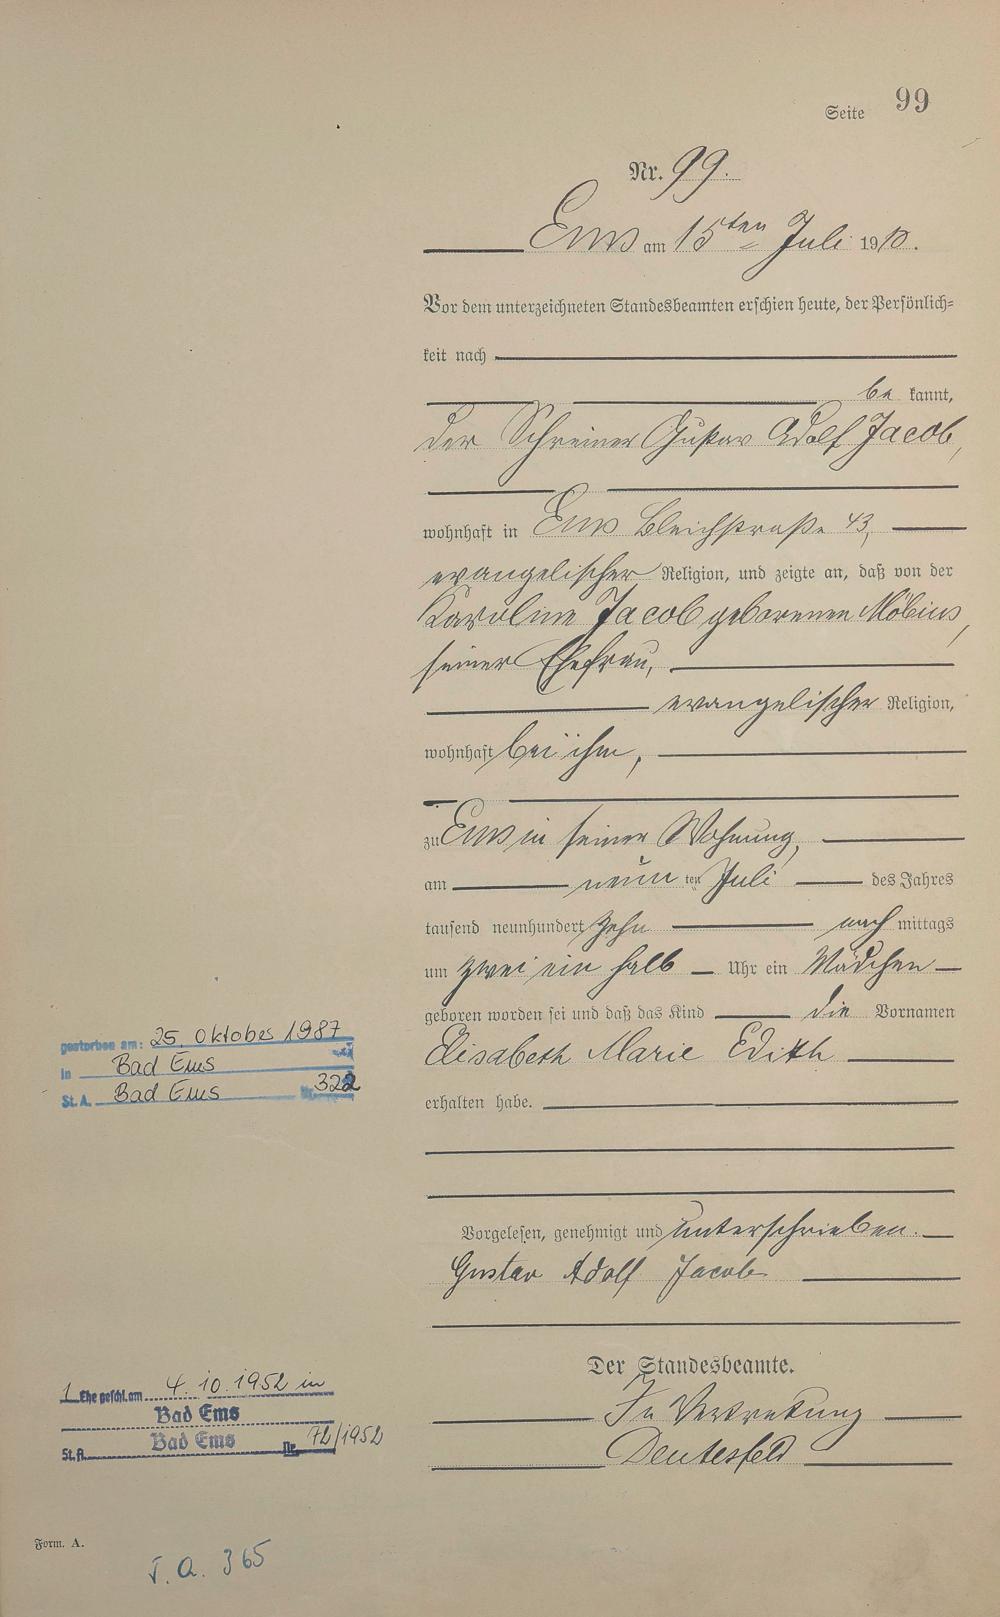 Seite 99
Nr. 99.
Ems am 15ten Juli 1910.
Vor dem unterzeichneten Standesbeamten erschien heute, der Persönlich=
keit nach
be kannt,
der Schreiner Gustav Adolf Jacob,
wohnhaft in Ems Bleichstraße 43,
evangelischer Religion, und zeigte an, daß von der
Karoline Jacob geborenen Möbius,
seiner Ehefrau,
evangelischer Religion,
wohnhaft bei ihm,
zu Ems in seiner Wohnung,
am neun ten Juli des Jahres
tausend neunhundert zehn nach mittags
um zwei ein halb Uhr ein Mädchen
geboren worden sei und daß das Kind die Vornamen
Elisabeth Marie Edith
erhalten habe.
Vorgelesen, genehmigt und unterschrieben.
Gustav Adolf Jacob
Der Standesbeamte.
In Vertretung
Deutesfeld
gestorben am: 25. Oktober 1987
in Bad Ems
St. A. Bad Ems Nr. 322
1. Ehe geschl. am 4.10.1952 in
Bad Ems
St. A. Bad Ems Nr. 72/1952
Form. A.
T. A. 365